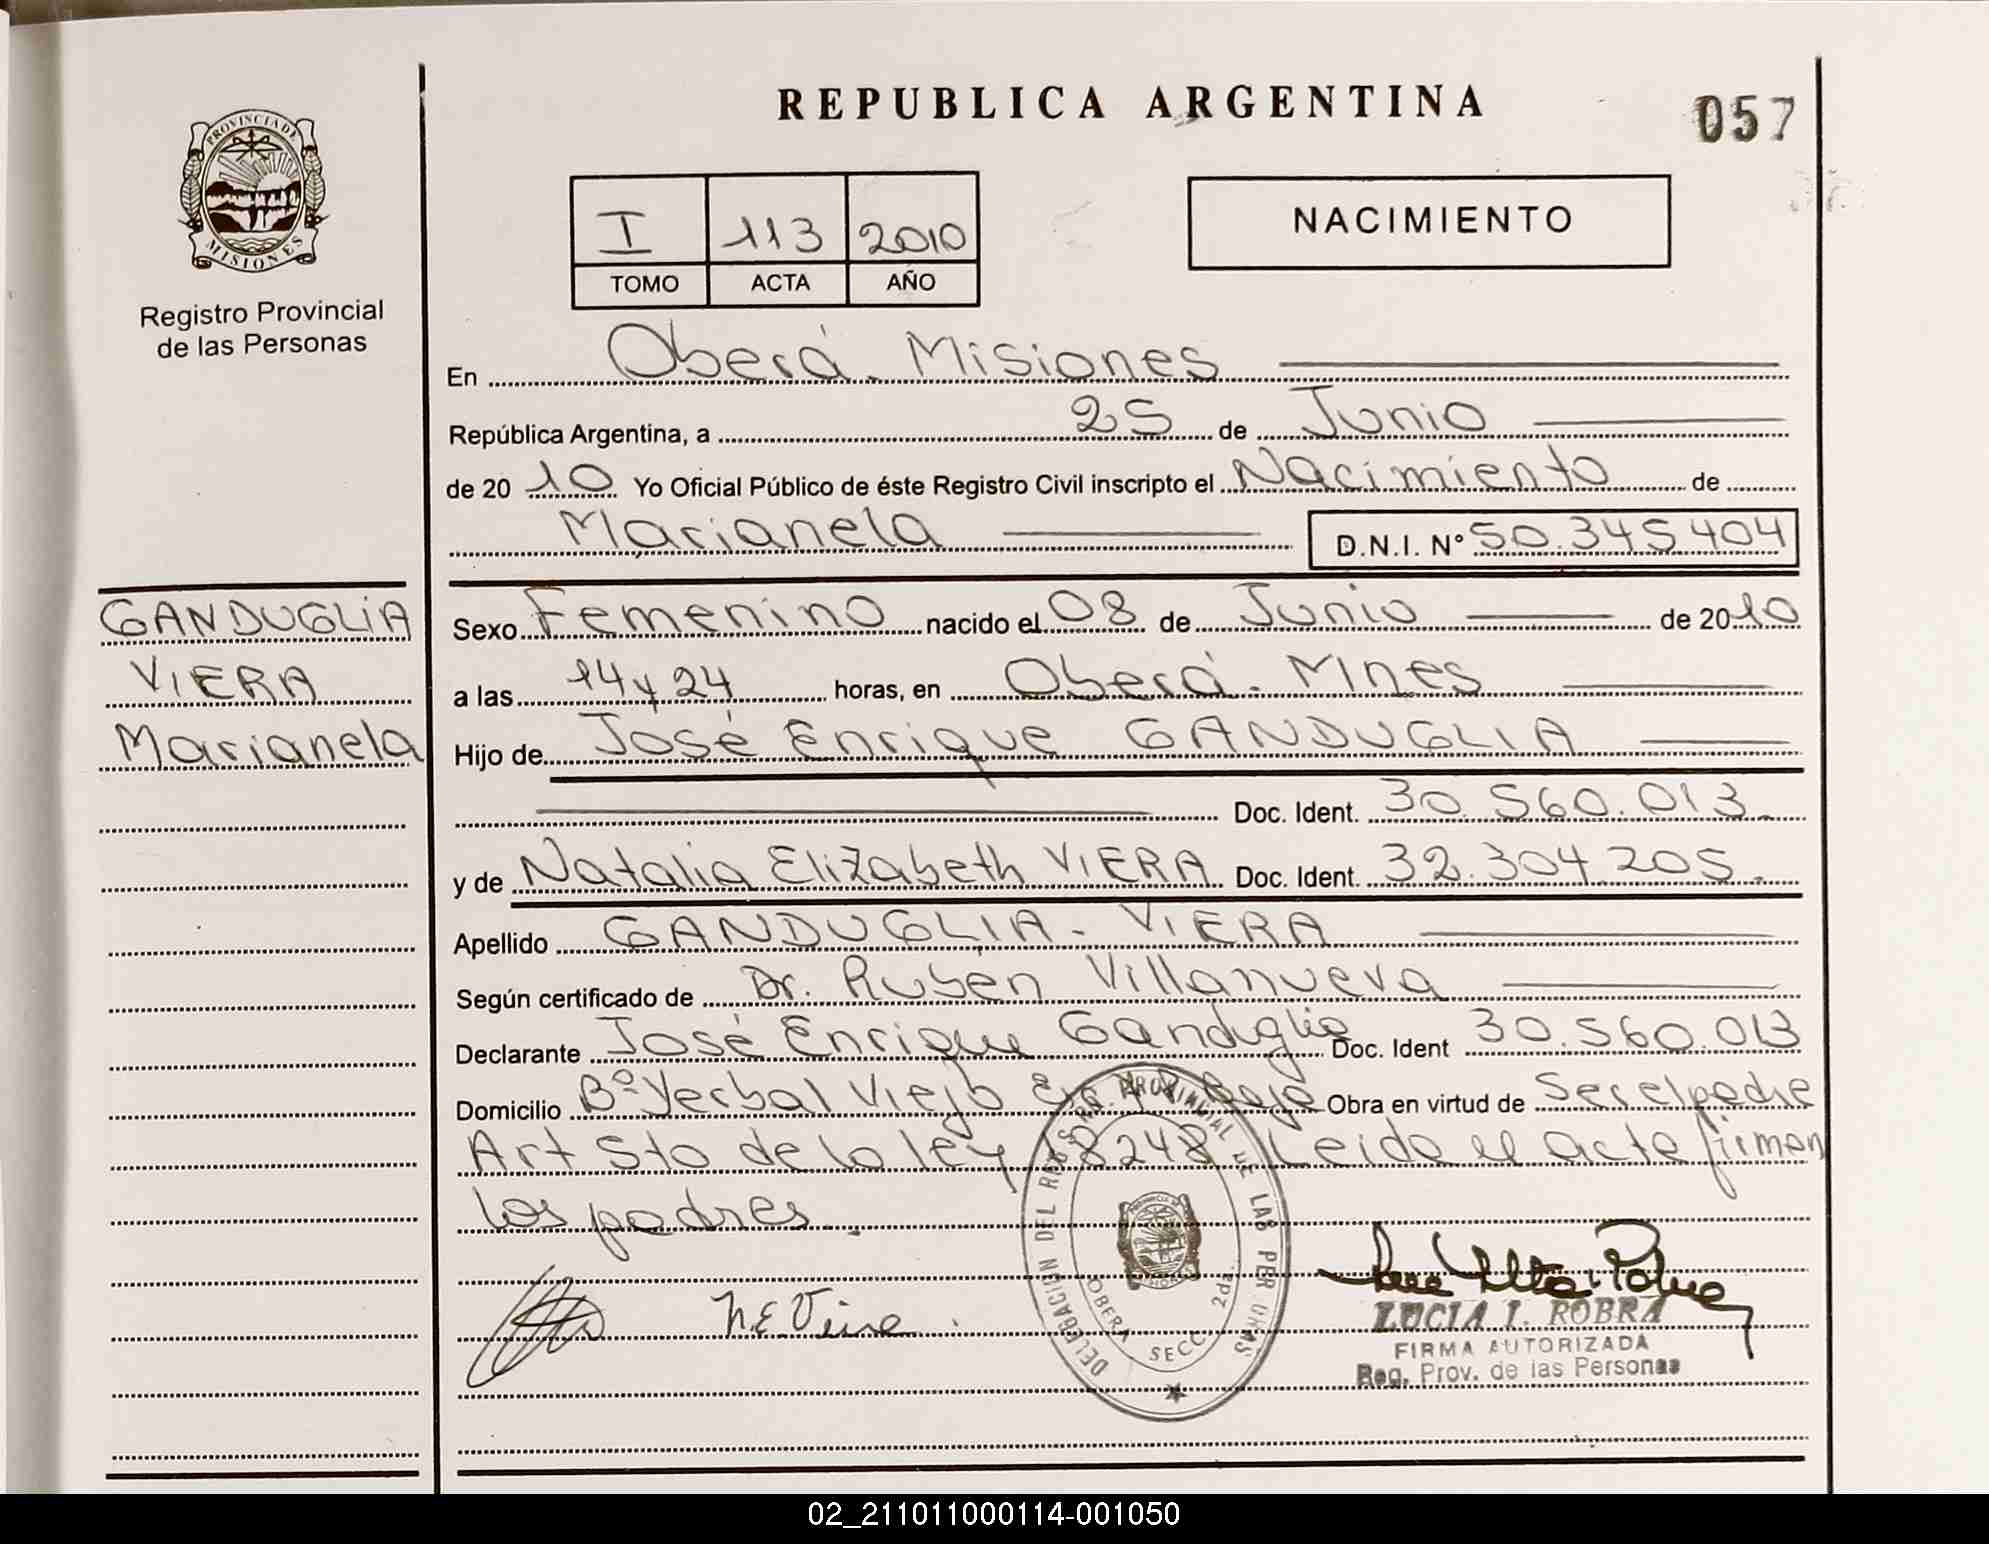 REPUBLICA ARGENTINA
057
PROVINCIA DE
MISIONES
Registro Provincial
de las Personas
I 113 2010
TOMO ACTA AÑO
NACIMIENTO
En Oberá. Misiones
República Argentina, a 25 de Junio
de 2010 Yo Oficial Público de éste Registro Civil inscripto el Nacimiento de
Marianela D.N.I. N° 50.345.404
GANDUGLIA
VIERA
Marianela
Sexo Femenino nacido el 08 de Junio de 2010
a las 14 y 24 horas, en Oberá. Mnes
Hijo de José Enrique GANDUGLIA
Doc. Ident. 30.560.013.
y de Natalia Elizabeth VIERA Doc. Ident. 32.304.205.
Apellido GANDUGLIA - VIERA
Según certificado de Dr. Rubén Villanueva
Declarante José Enrique Ganduglia Doc. Ident 30.560.013
Domicilio B° Yerbal Viejo Obra en virtud de Ser el padre
Art 5to de la ley 18248 Leida el acta firman
los padres.
N.E.Viera.
DELEGACION DEL REG. PROVINCIAL DE LAS PERSONAS
OBERA SECC. 2da.
LUCIA I. ROBRA
FIRMA AUTORIZADA
Reg. Prov. de las Personas
02_211011000114-001050